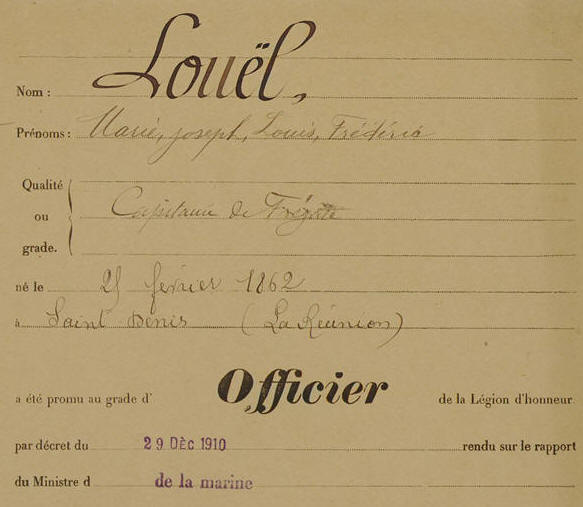 Nom : Louël,
Prénoms : Marie, joseph, Louis, Frédéric
Qualité
ou
grade.
Capitaine de Frégate
né le 25 février 1862
à Saint Denis (La Réunion)
a été promu au grade d' Officier de la Légion d'honneur
par décret du 29 DÉC 1910 rendu sur le rapport
du Ministre d de la marine